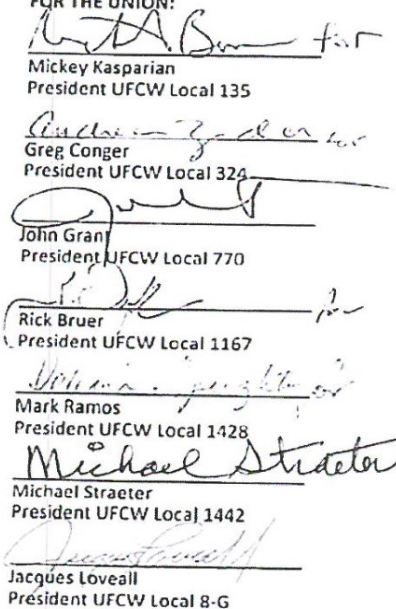 FOR THE UNION:
for
Mickey Kasparian
President UFCW Local 135
Greg Conger
President UFCW Local 324
John Grant
President UFCW Local 770
Rick Bruer
President UFCW Local 1167
Mark Ramos
President UFCW Local 1428
Michael Straeter
Michael Straeter
President UFCW Local 1442
Jacques Loveall
President UFCW Local 8-G